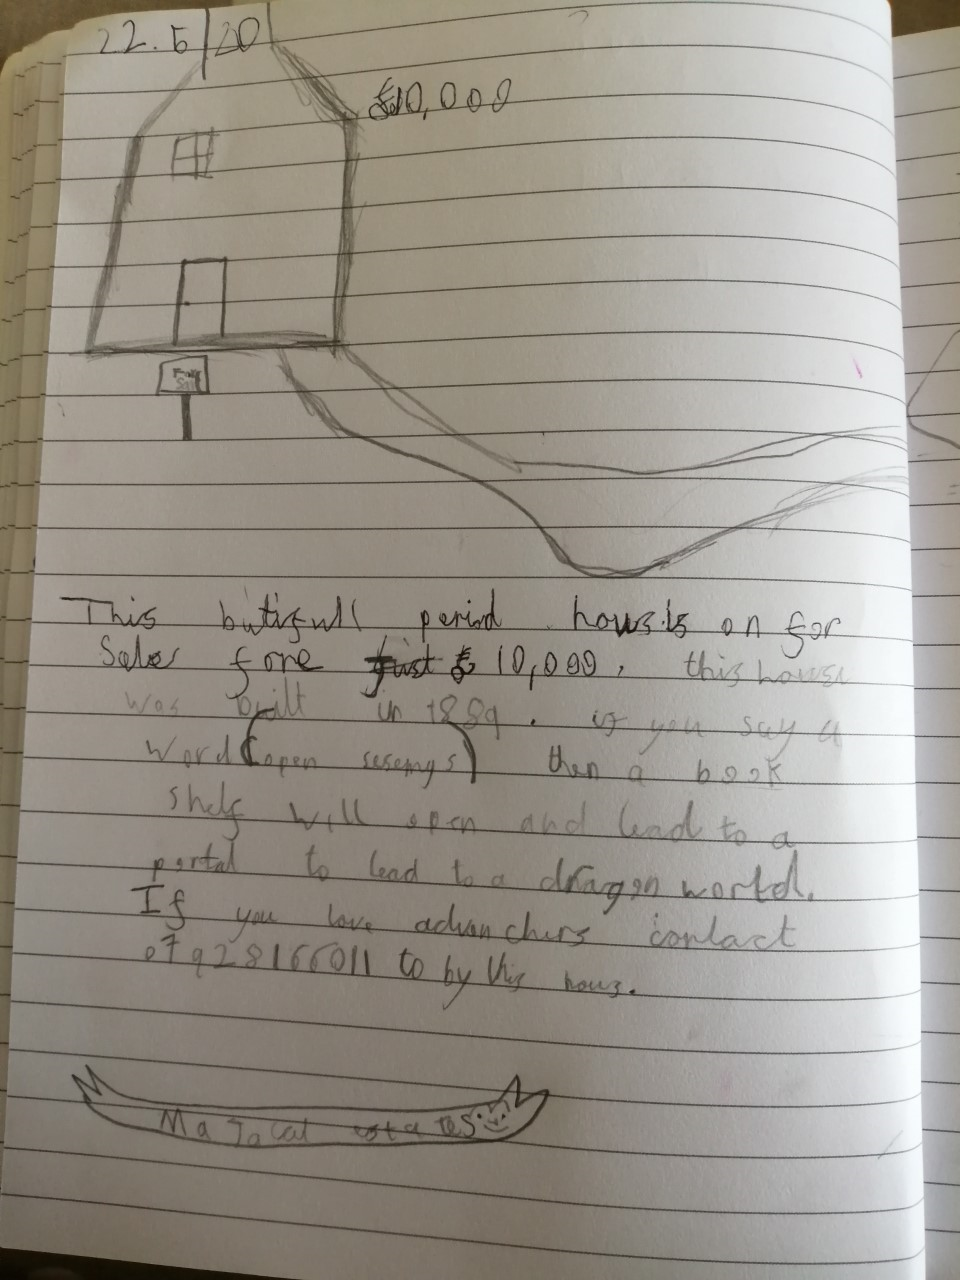 22.5/20
£10,000
For
Sale
This butifull period hous is on for
Sale fore just £10,000, this hous
was built in 1889. if you say a
word (open sesemys) then a book
shelf will open and lead to a
portal to lead to a dragon world.
If you love advanchers contact
07928166011 to by this hous.
Majacal estates